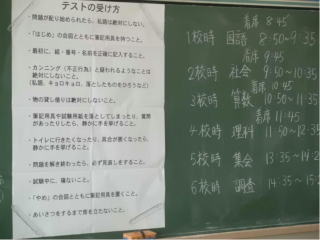 テストの受け方
・問題が配り始められたら、私語は絶対にしない。
・「はじめ」の合図とともに筆記用具を持つこと。
・最初に、組・番号・名前を正確に記入すること。
・カンニング（不正行為）と疑われるようなことは
絶対にしないこと。
（私語、キョロキョロ、落としたものをひろうなど）
・物の貸し借りは絶対にしないこと。
・筆記用具や試験用紙を落としてしまったり、質問
があったりしたら、静かに手を挙げること。
・トイレに行きたくなったり、具合が悪くなったら、
静かに手を挙げること。
・問題を解き終わったら、必ず見直しをすること。
・試験中に、寝ないこと。
・「やめ」の合図とともに筆記用具を置くこと。
・あいさつをするまで席を立たないこと。
着席 8:45
1校時 国語 8:50~9:35
着席 9:45
2校時 社会 9:50~10:35
着席 10:45
3校時 算数 10:50~11:35
着席 11:45
4校時 理科 11:50~12:35
5校時 集会 13:35~14:2
6校時 調査 14:35~15:2